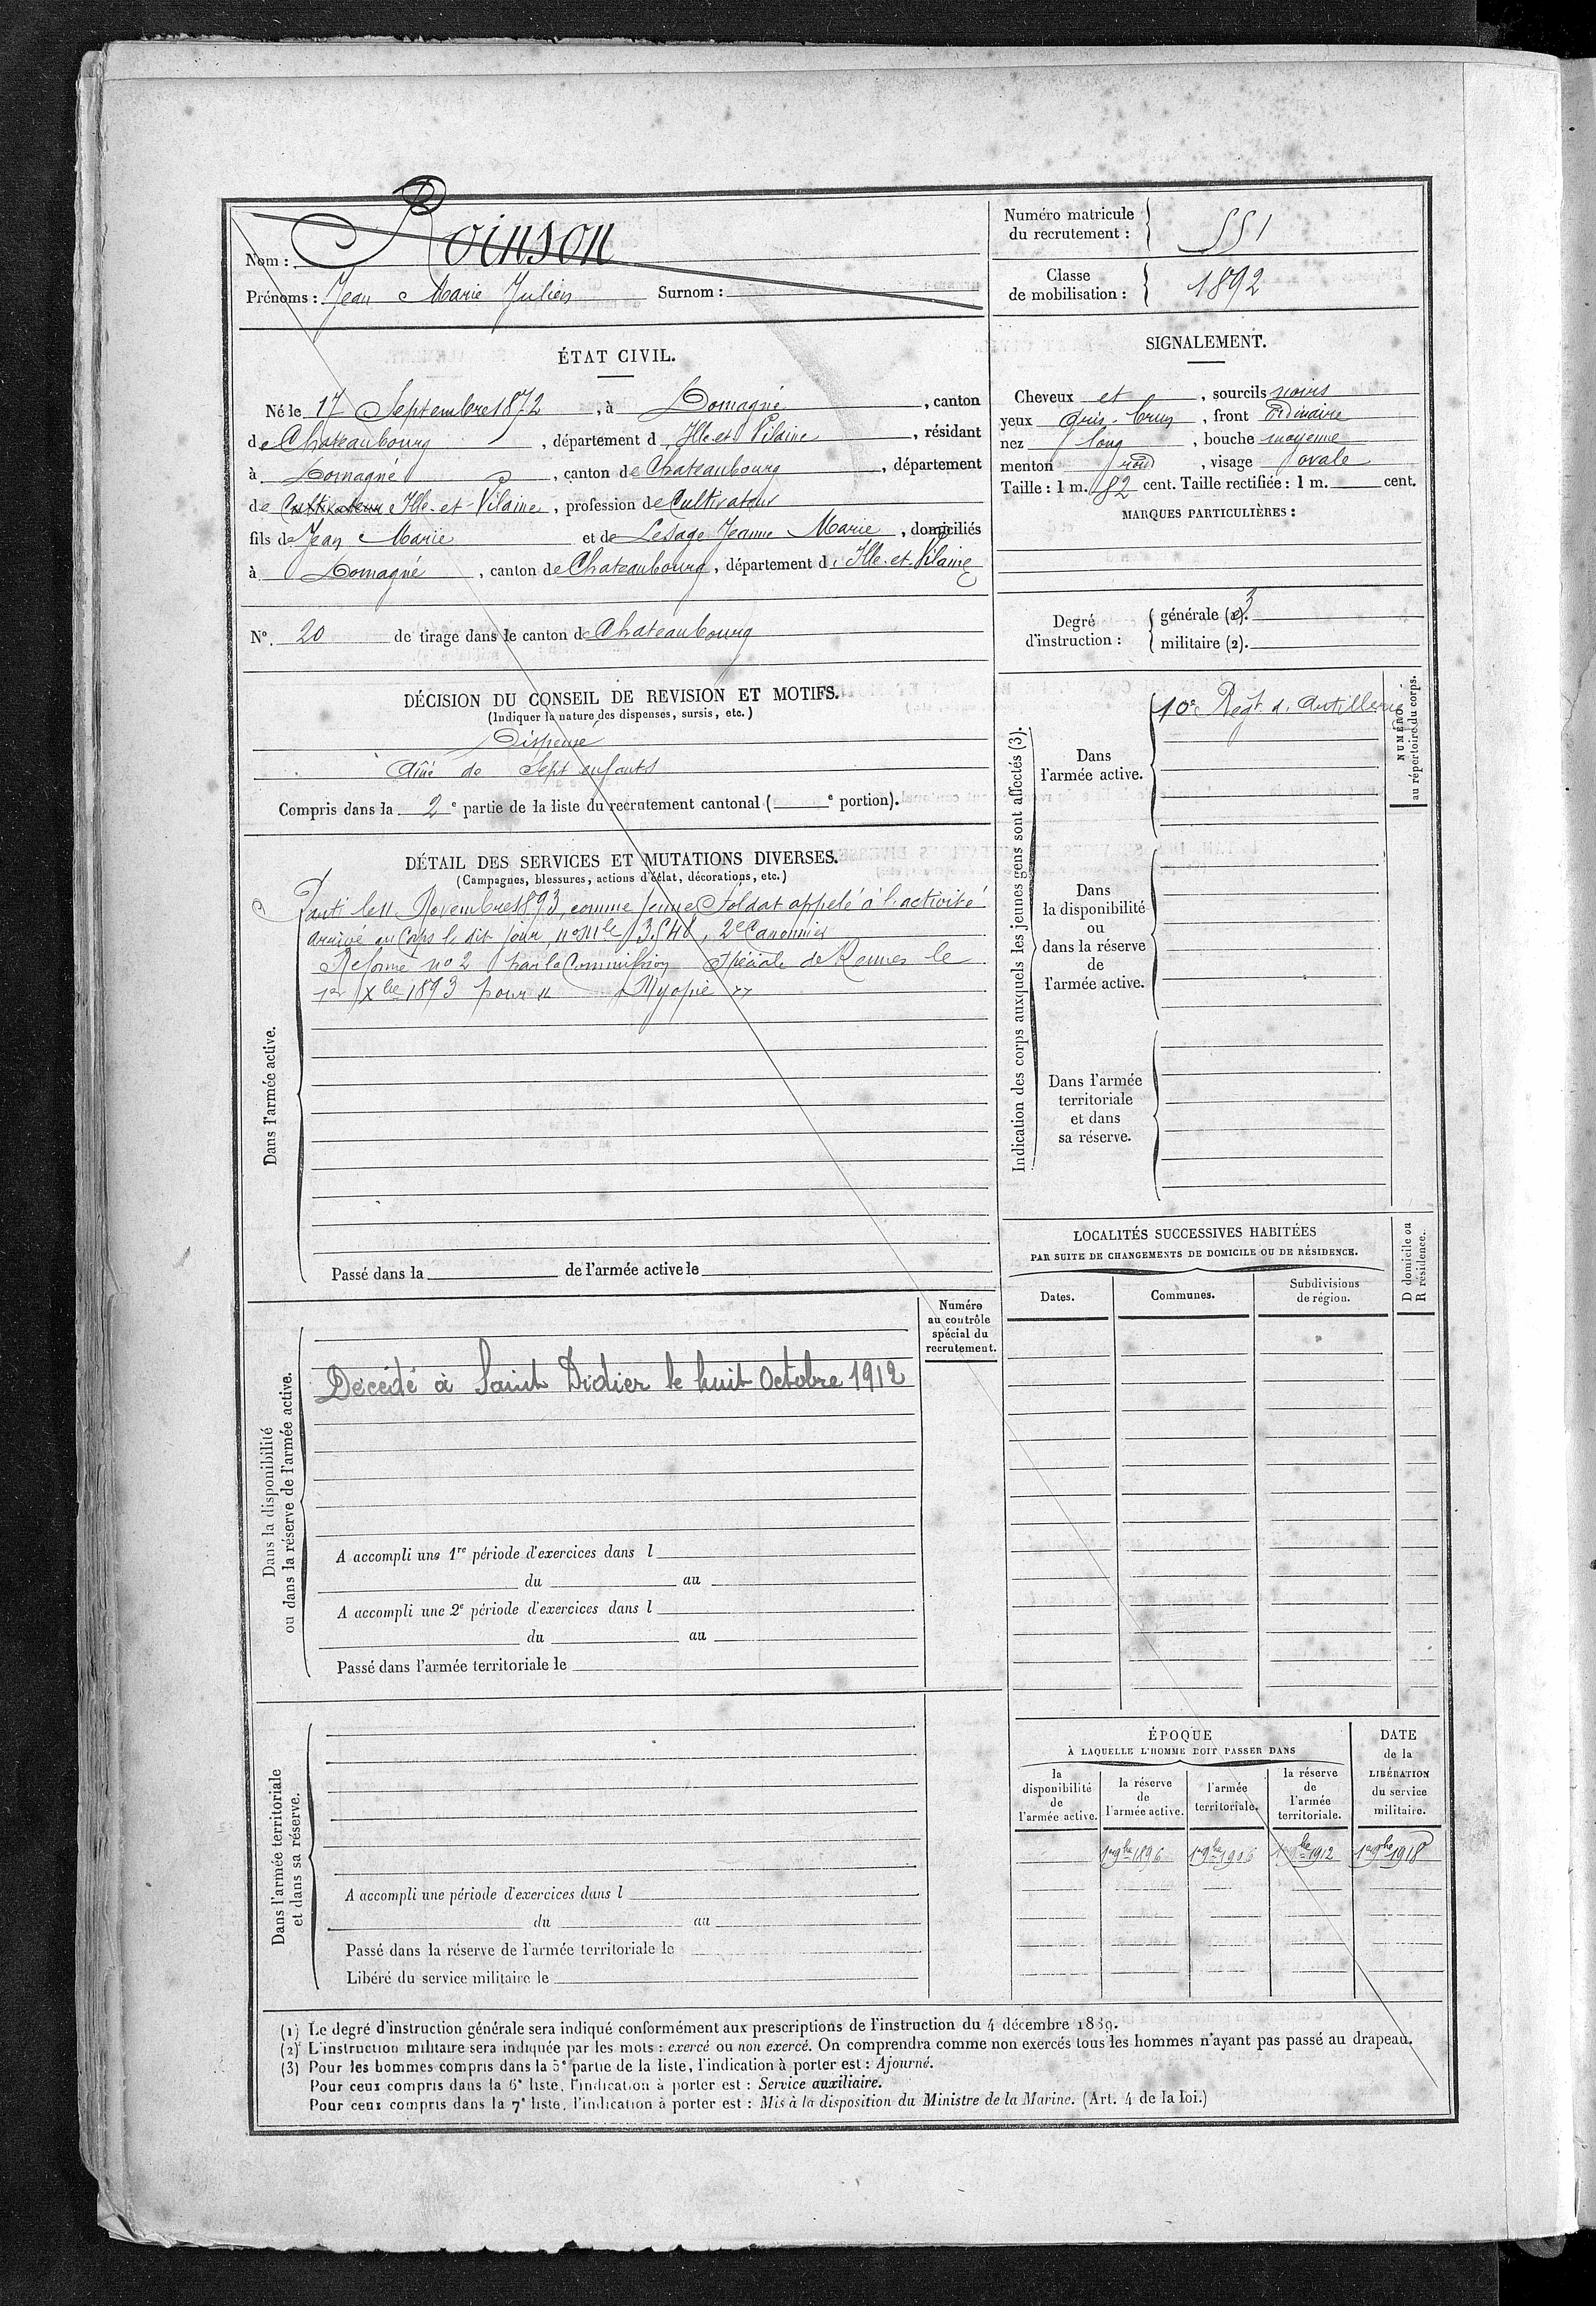 Nom : Roinson
Prénoms : Jean Marie Julien Surnom :
Numéro matricule
du recrutement : 551
Classe
de mobilisation : 1892
ÉTAT CIVIL.
Né le 17 Septembre 1872, à Domagné, canton
de Chateaubourg, département d Ille et Vilaine, résidant
à Domagné, canton de Chateaubourg, département
de Cultivateur Ille-et-Vilaine, profession de Cultivateur
fils de Jean Marie et de Lesage Jeanne Marie, domiciliés
à Domagné, canton de Chateaubourg, département d Ille-et-Vilaine
N°. 20 de tirage dans le canton de Chateaubourg
SIGNALEMENT.
Cheveux et, sourcils noirs
yeux gris-brun, front Ordinaire
nez long, bouche moyenne
menton rond, visage ovale
Taille : 1 m. 82 cent. Taille rectifiée : 1 m. cent.
MARQUES PARTICULIÈRES :
Degré
d'instruction :
générale (1). 3
militaire (2).
DÉCISION DU CONSEIL DE REVISION ET MOTIFS.
(Indiquer la nature des dispenses, sursis, etc.)
Dispensé
Aîné de Sept enfants
Compris dans la 2e partie de la liste du recrutement cantonal ( e portion).
DÉTAIL DES SERVICES ET MUTATIONS DIVERSES.
(Campagnes, blessures, actions d'éclat, décorations, etc.)
Dans l'armée active.
Parti le 11 Novembre 1893, comme jeune Soldat appelé à l'activité
arrivé au Corps le dit jour, no Mle 3548, 2e Canonnier
Réformé no 2 par la Commission Spéciale de Rennes le
1er Xbre 1893 pour " Myopie "
Passé dans la de l'armée active le
Indication des corps auxquels les jeunes gens sont affectés (3).
Dans
l'armée active.
10e Regt d'Artillerie
NUMÉRO
au répertoire du corps.
Dans
la disponibilité
ou
dans la réserve
de
l'armée active.
Dans l'armée
territoriale
et dans
sa réserve.
LOCALITÉS SUCCESSIVES HABITÉES
PAR SUITE DE CHANGEMENTS DE DOMICILE OU DE RÉSIDENCE.
Dates.
Communes.
Subdivisions
de région.
D domicile ou
R résidence.
Numéro
au contrôle
spécial du
recrutement.
Dans la disponibilité
ou dans la réserve de l'armée active.
Décédé à Saint Didier le huit Octobre 1912
A accompli une 1re période d'exercices dans l
du au
A accompli une 2e période d'exercices dans l
du au
Passé dans l'armée territoriale le
Dans l'armée territoriale
et dans sa réserve.
A accompli une période d'exercices dans l
du au
Passé dans la réserve de l'armée territoriale le
Libéré du service militaire le
ÉPOQUE
À LAQUELLE L'HOMME DOIT PASSER DANS
la
disponibilité
de
l'armée active.
la réserve
de
l'armée active.
l'armée
territoriale.
la réserve
de
l'armée
territoriale.
DATE
de la
LIBÉRATION
du service
militaire.
1er 9bre 1896 1er 9bre 1906 1er 9bre 1912 1er 9bre 1918
(1) Le degré d'instruction générale sera indiqué conformément aux prescriptions de l'instruction du 4 décembre 1889.
(2) L'instruction militaire sera indiquée par les mots : exercé ou non exercé. On comprendra comme non exercés tous les hommes n'ayant pas passé au drapeau.
(3) Pour les hommes compris dans la 5e partie de la liste, l'indication à porter est : Ajourné.
Pour ceux compris dans la 6e liste, l'indication à porter est : Service auxiliaire.
Pour ceux compris dans la 7e liste, l'indication à porter est : Mis à la disposition du Ministre de la Marine. (Art. 4 de la loi.)